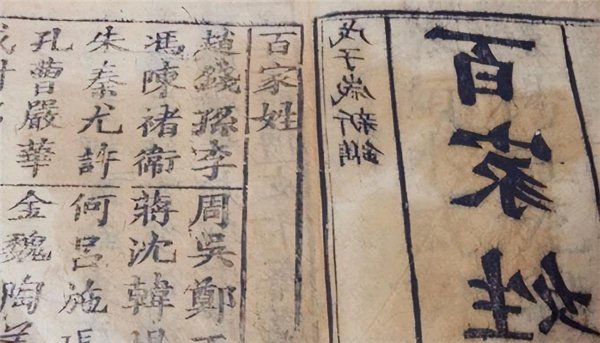 百家姓
戊子歲新鐫
百家姓
趙錢孫李
周吳鄭
馮陳褚衛
蔣沈韓
朱秦尤許
何呂施張
孔曹嚴華
金魏陶